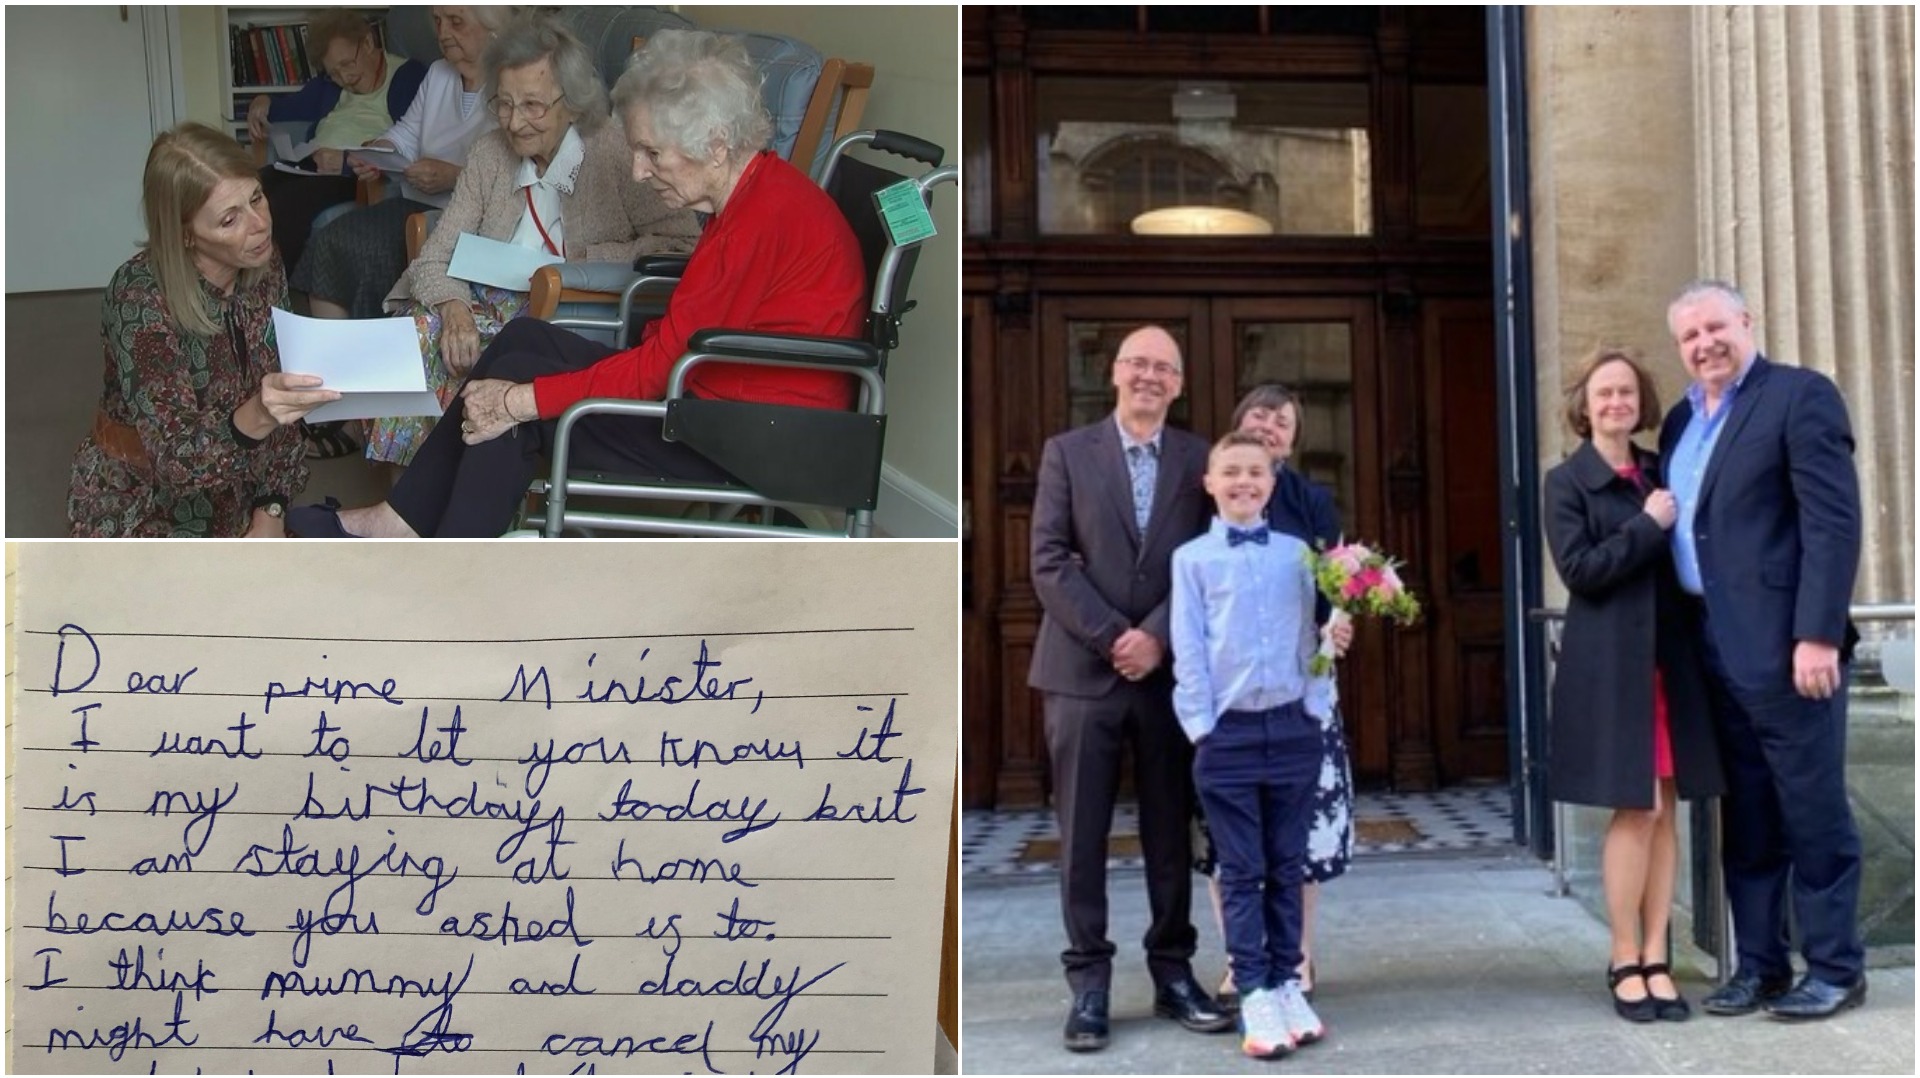 Dear prime Minister,
I want to let you know it
is my birthday today but
I am staying at home
because you asked us to.
I think mummy and daddy
might have to cancel my